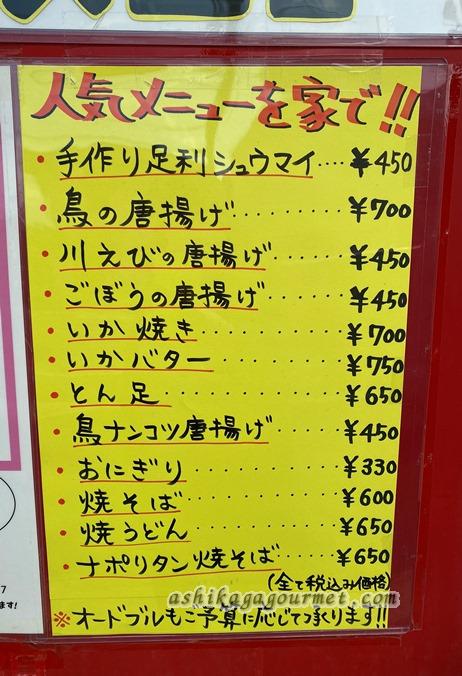 人気メニューを家で!!
・手作り足利シュウマイ....¥450
・鳥の唐揚げ..........¥700
・川えびの唐揚げ........¥450
・ごぼうの唐揚げ........¥450
・いか焼き............¥700
・いかバター..........¥750
・とん足............¥650
・鳥ナンコツ唐揚げ......¥450
・おにぎり............¥330
・焼そば............¥600
・焼うどん............¥650
・ナポリタン焼そば......¥650
(全て税込み価格)
ashikagagourmet.com
※オードブルもご予算に応じてつくります!!
7
ます!